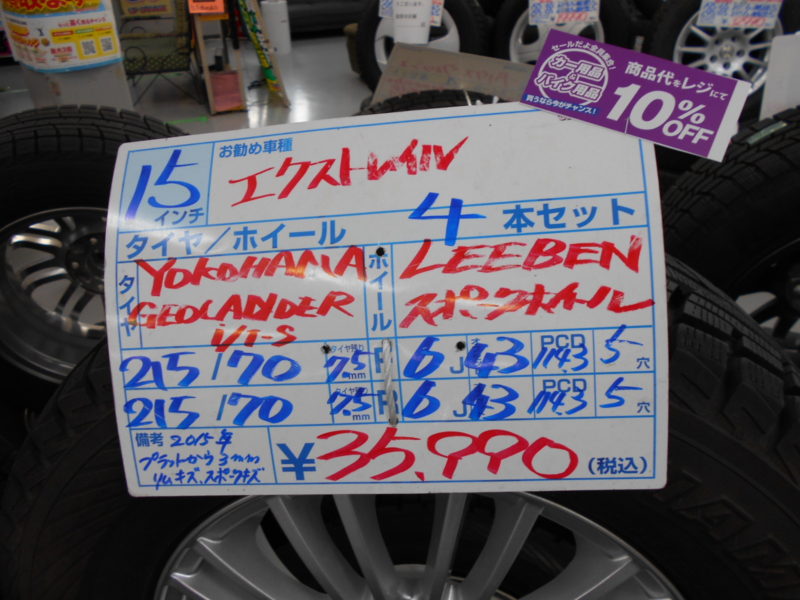 セールだよ全員集合!
カー用品
&
バイク用品
買うなら今がチャンス!
商品代をレジにて
10%
OFF
お勧め車種
15
インチ
エクストレイル
4 本セット
タイヤ/ホイール
タイヤ
YOKOHANA
GEOLANDER
I/T-S
ホイール
LEEBEN
スポークホイール
215/70 タイヤ残り 7.5mm R 6J 43 PCD 114.3 5穴
215/70 タイヤ残り 7.5mm R 6J 43 PCD 114.3 5穴
備考 2015年
プラットから3mm
リムキズ、スポークキズ
¥35,990(税込)